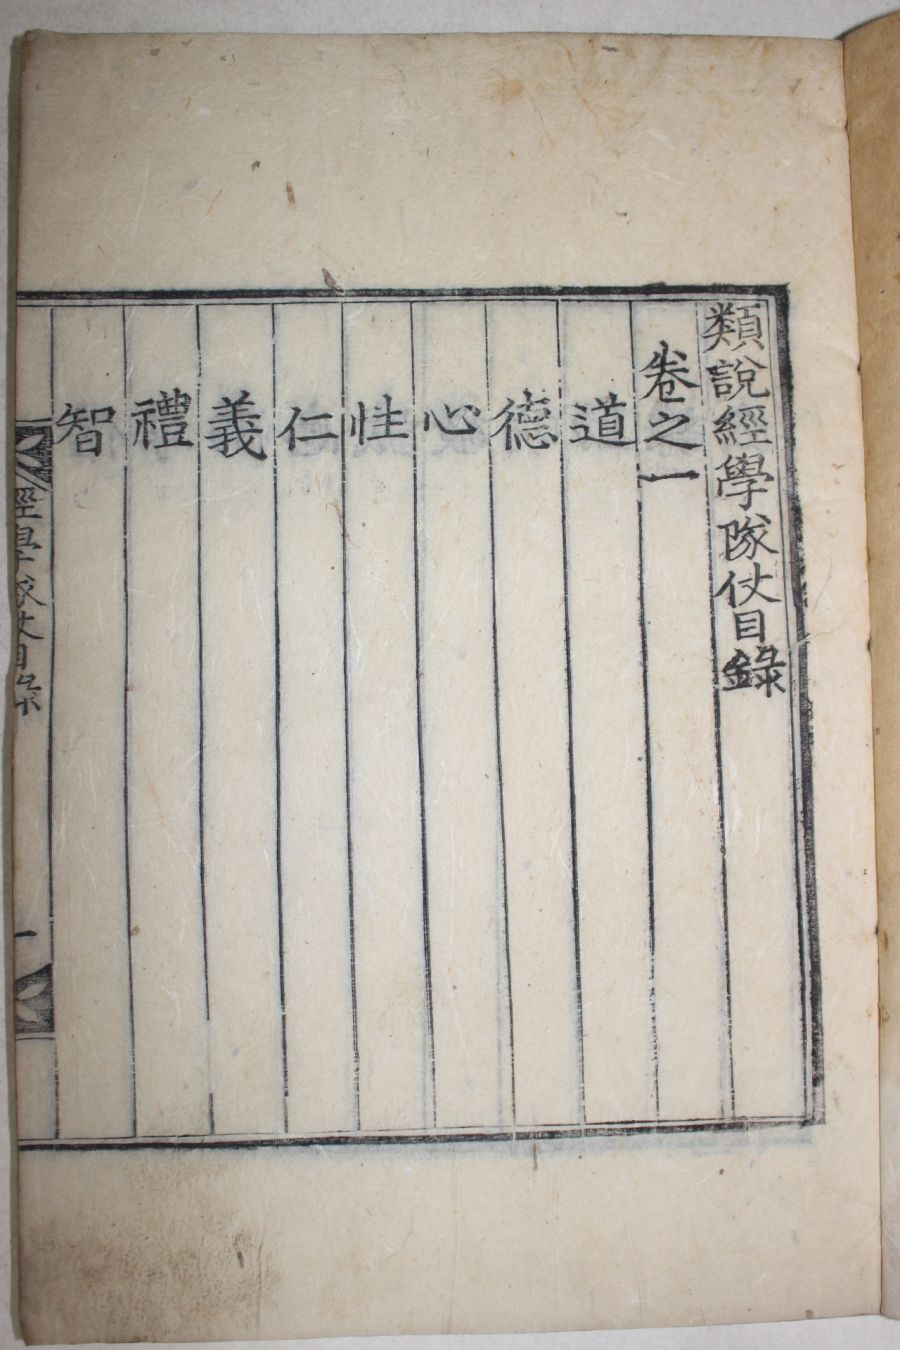 類說經學隊仗目錄
卷之一
道
德
心
性
仁
義
禮
智
經學隊仗目录
一